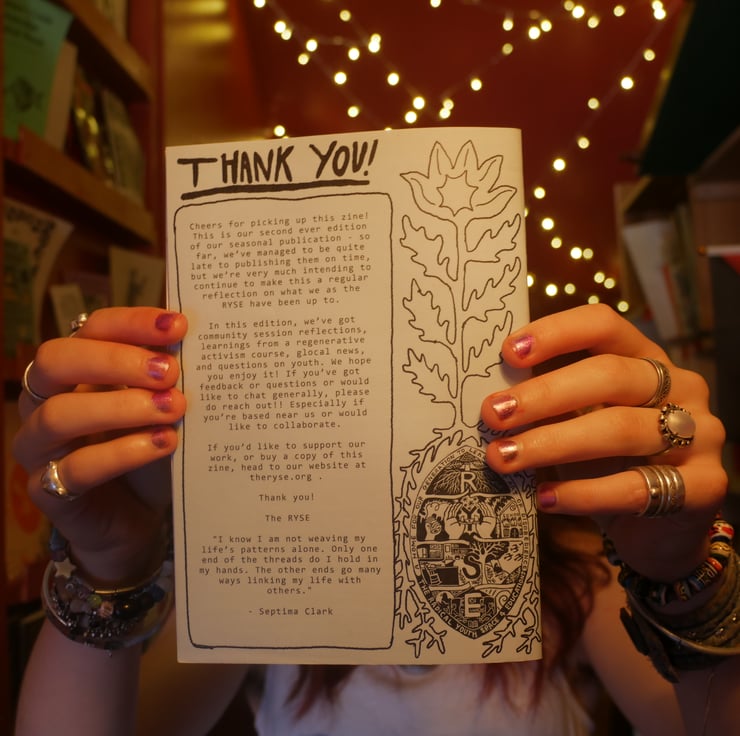 THANK YOU!
Cheers for picking up this zine!
This is our second ever edition
of our seasonal publication - so
far, we've managed to be quite
late to publishing them on time,
but we're very much intending to
continue to make this a regular
reflection on what we as the
RYSE have been up to.
In this edition, we've got
community session reflections,
learnings from a regenerative
activism course, glocal news,
and questions on youth. We hope
you enjoy it! If you've got
feedback or questions or would
like to chat generally, please
do reach out!! Especially if
you're based near us or would
like to collaborate.
If you'd like to support our
work, or buy a copy of this
zine, head to our website at
theryse.org .
Thank you!
The RYSE
"I know I am not weaving my
life's patterns alone. Only one
end of the threads do I hold in
my hands. The other ends go many
ways linking my life with
others."
- Septima Clark
R
Y
S
E